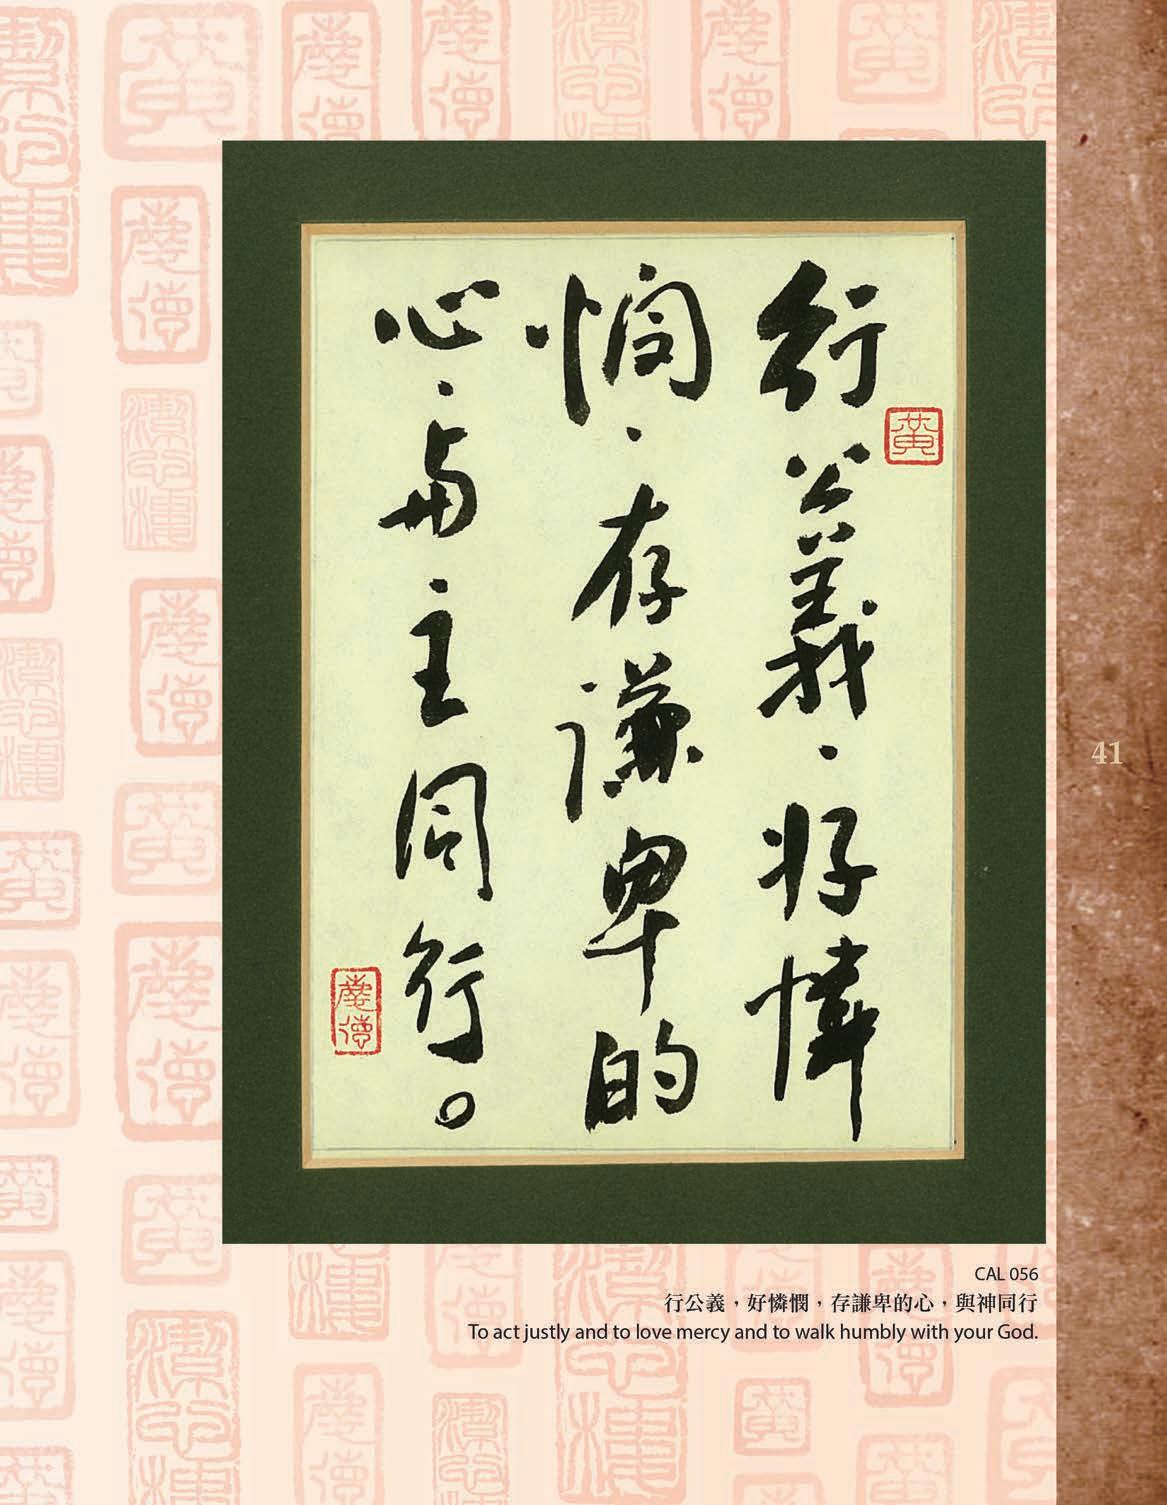 行公義·好憐
憫·存謙卑的
心·與主同行。
黃
慶德
41
CAL 056
行公義，好憐憫，存謙卑的心，與神同行
To act justly and to love mercy and to walk humbly with your God.